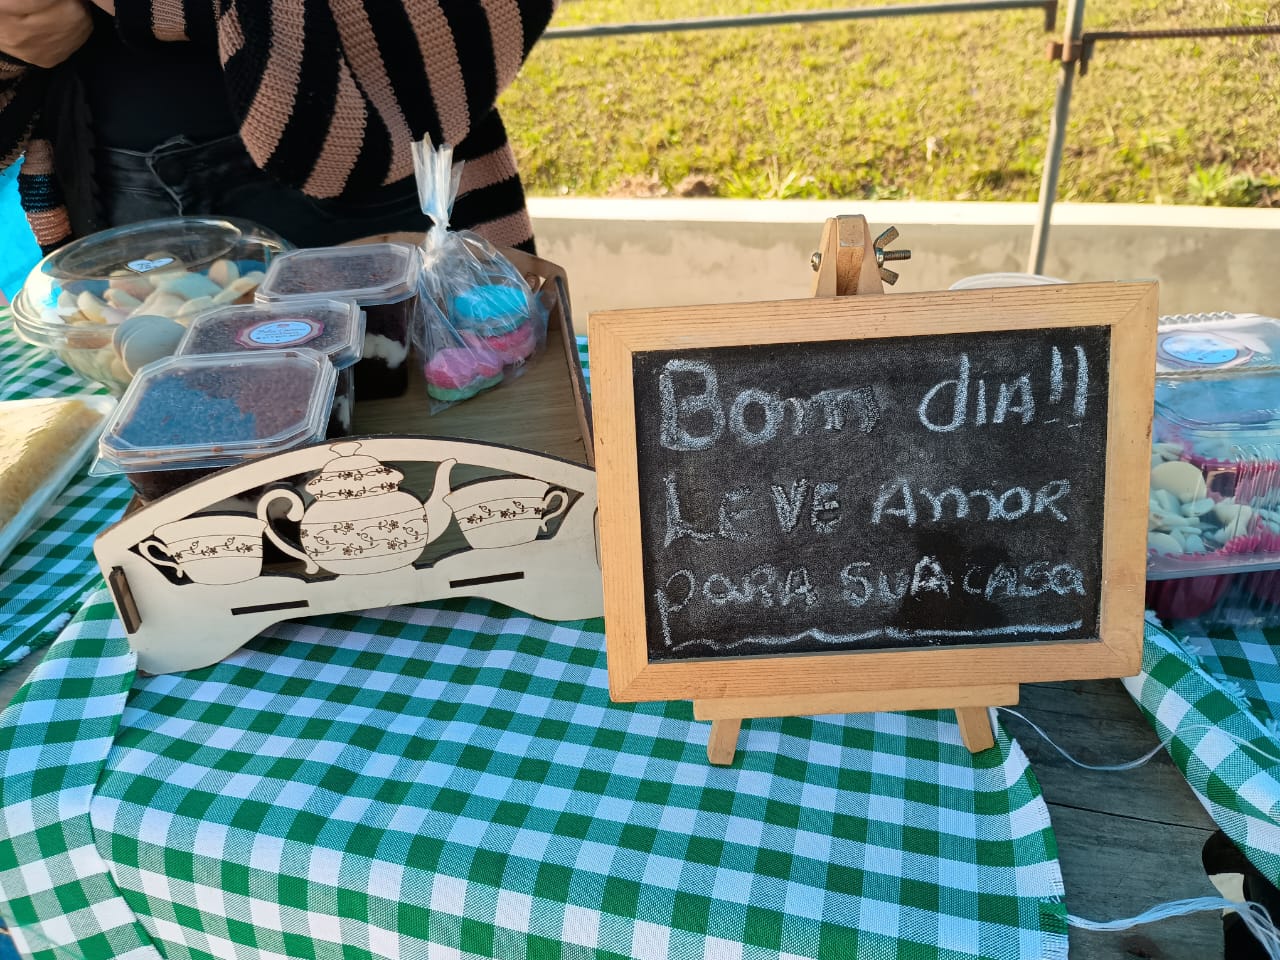 Bom dIA!!
LEVE AmoR
paRA SUA CASa